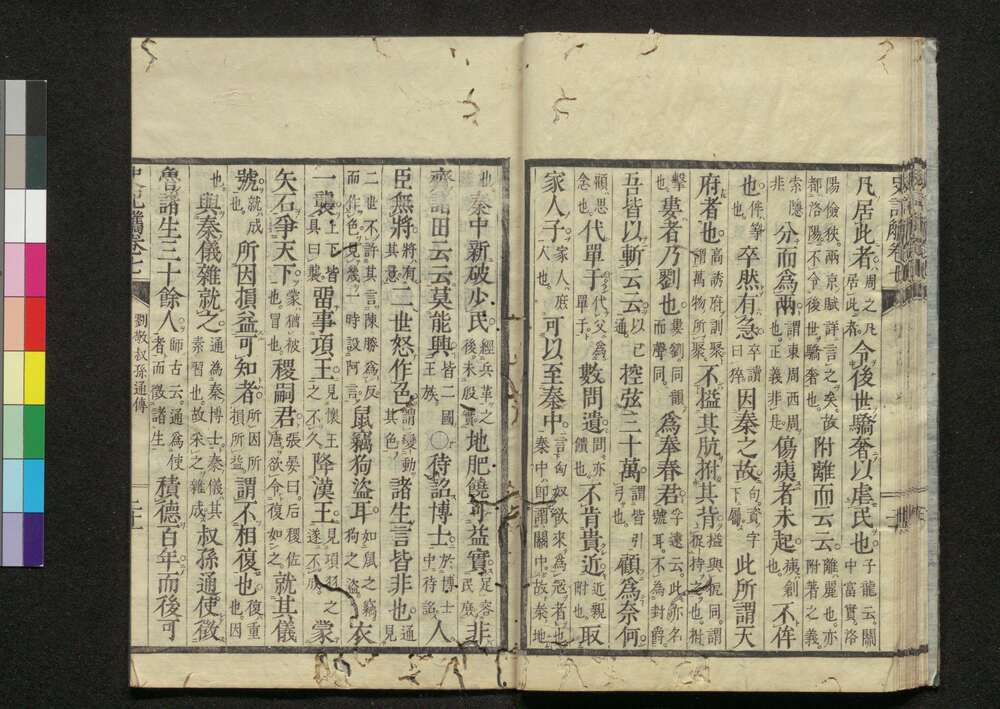 凡居此者周之凡居此者令後世驕奢以虐民也子龍云關中富實洛
陽儉狹兩京賦詳言之矣故都洛陽不令後世驕奢也附離而云云離麗也亦附著之義
索隱非分而爲兩謂東周西周也正義非是傷痍者未起痍創也不侔
也侔等也卒然有急卒讀曰猝因秦之故句資字下屬此所謂天
府者也高誘府訓聚謂萬物所聚不搤其肮拊其背搤與扼同謂捉持之也拊
擊也婁者乃劉也婁劉同韻而聲同爲奉春君孚遠云此亦名號耳不為封爵
吾皆以斬云云已通控弦三十萬謂皆引弓也顧爲奈何
顧思念也代單于代父爲單于數問遺問亦饋也不肯貴近近親附也取
家人子家人庶人也可以至秦中言匈奴欲來為寇者也秦中即謂關中故秦地
也秦中新破少民經兵革之後未殷實地肥饒可益實足容民庶非
齊諸田云云莫能興皆二國王族〇待詔博士於博士中待詔人
臣無將將有其意二世怒作色謂變動其色諸生言皆非也通見
二世不許其言陳勝爲反而作色見幾一時設阿言鼠竊狗盜耳如鼠之竊狗之盜衣
一襲上下皆具曰襲畱事項王見懷王之不久降漢王見項羽之遂不成蒙
矢石爭天下蒙猶被也冒也稷嗣君張晏曰后稷佐唐欲令復如之就其儀
號就成也所因損益可知者所因所損所益謂不相復也復重也因
也與秦儀雜就之通為秦博士秦儀其素習也故采之雜成叔孫通使徵
魯諸生三十餘人師古云通爲使者而徵諸生積德百年而後可
劉敬叔孫通傳